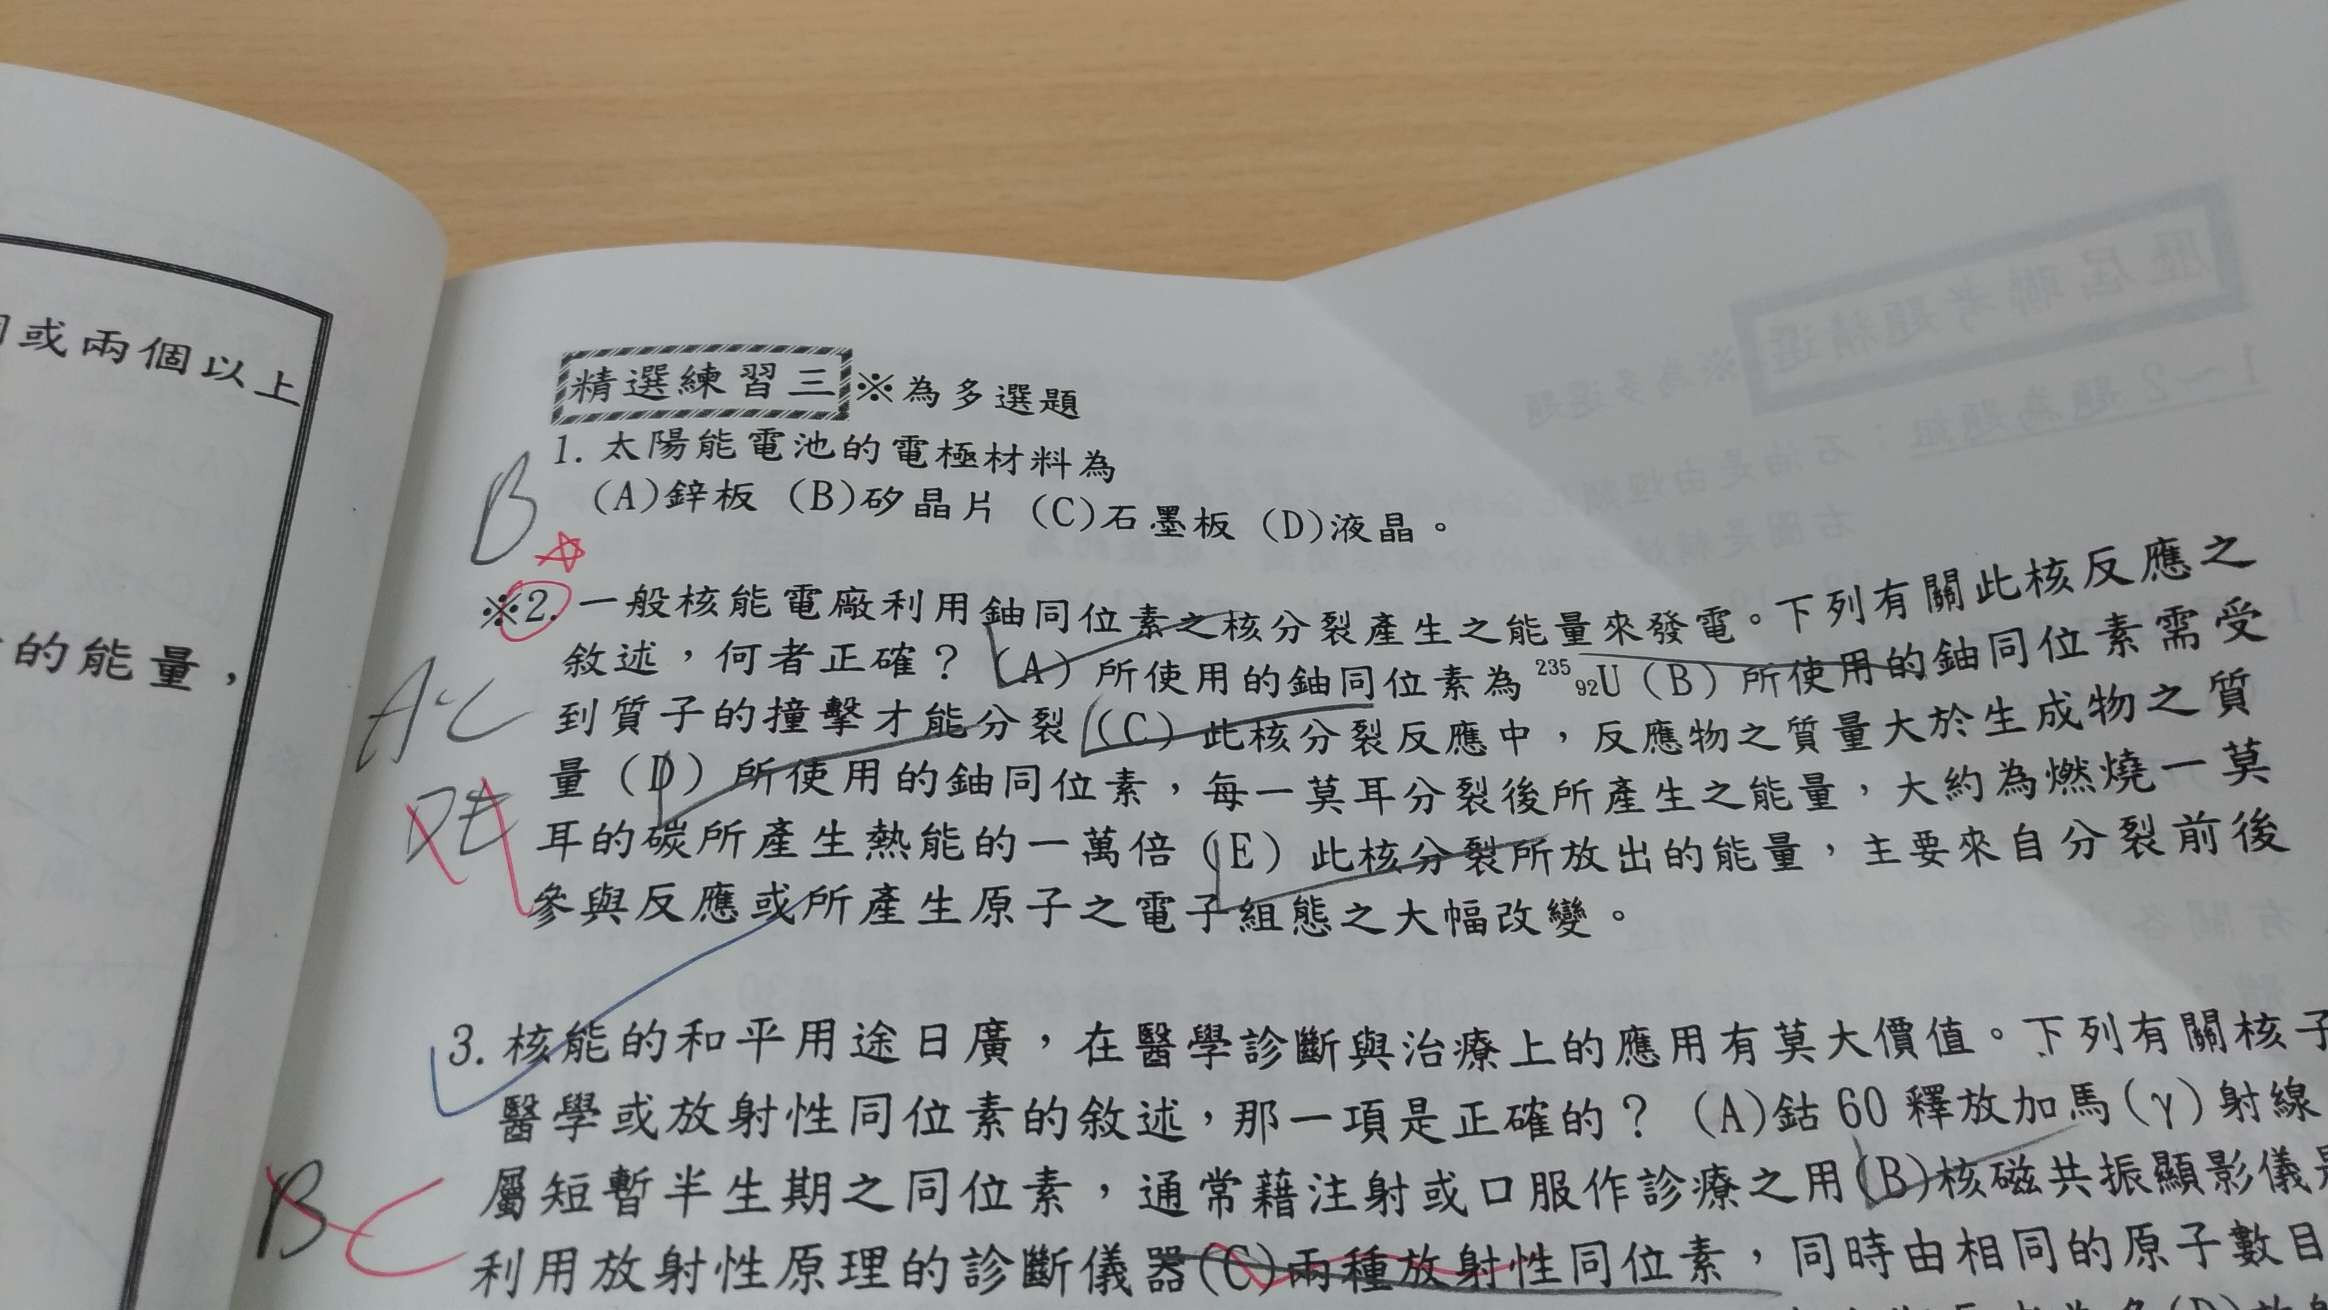 或兩個以上
的能量，
精選練習三 ※為多選題
1. 太陽能電池的電極材料為
(A)鋅板 (B)矽晶片 (C)石墨板 (D)液晶。
B
※2. 一般核能電廠利用鈾同位素之核分裂產生之能量來發電。下列有關此核反應之
敘述，何者正確？ (A) 所使用的鈾同位素為 ²³⁵₉₂U (B) 所使用的鈾同位素需受
到質子的撞擊才能分裂 (C) 此核分裂反應中，反應物之質量大於生成物之質
AC
量 (D) 所使用的鈾同位素，每一莫耳分裂後所產生之能量，大約為燃燒一莫
DE
耳的碳所產生熱能的一萬倍 (E) 此核分裂所放出的能量，主要來自分裂前後
參與反應或所產生原子之電子組態之大幅改變。
3. 核能的和平用途日廣，在醫學診斷與治療上的應用有莫大價值。下列有關核子
醫學或放射性同位素的敘述，那一項是正確的？ (A)鈷 60 釋放加馬(γ)射線
屬短暫半生期之同位素，通常藉注射或口服作診療之用(B)核磁共振顯影儀是
B C
利用放射性原理的診斷儀器(C)兩種放射性同位素，同時由相同的原子數目
歷屆聯考題精選 ※為多選題
1～2 題為題組：石油是由埋藏